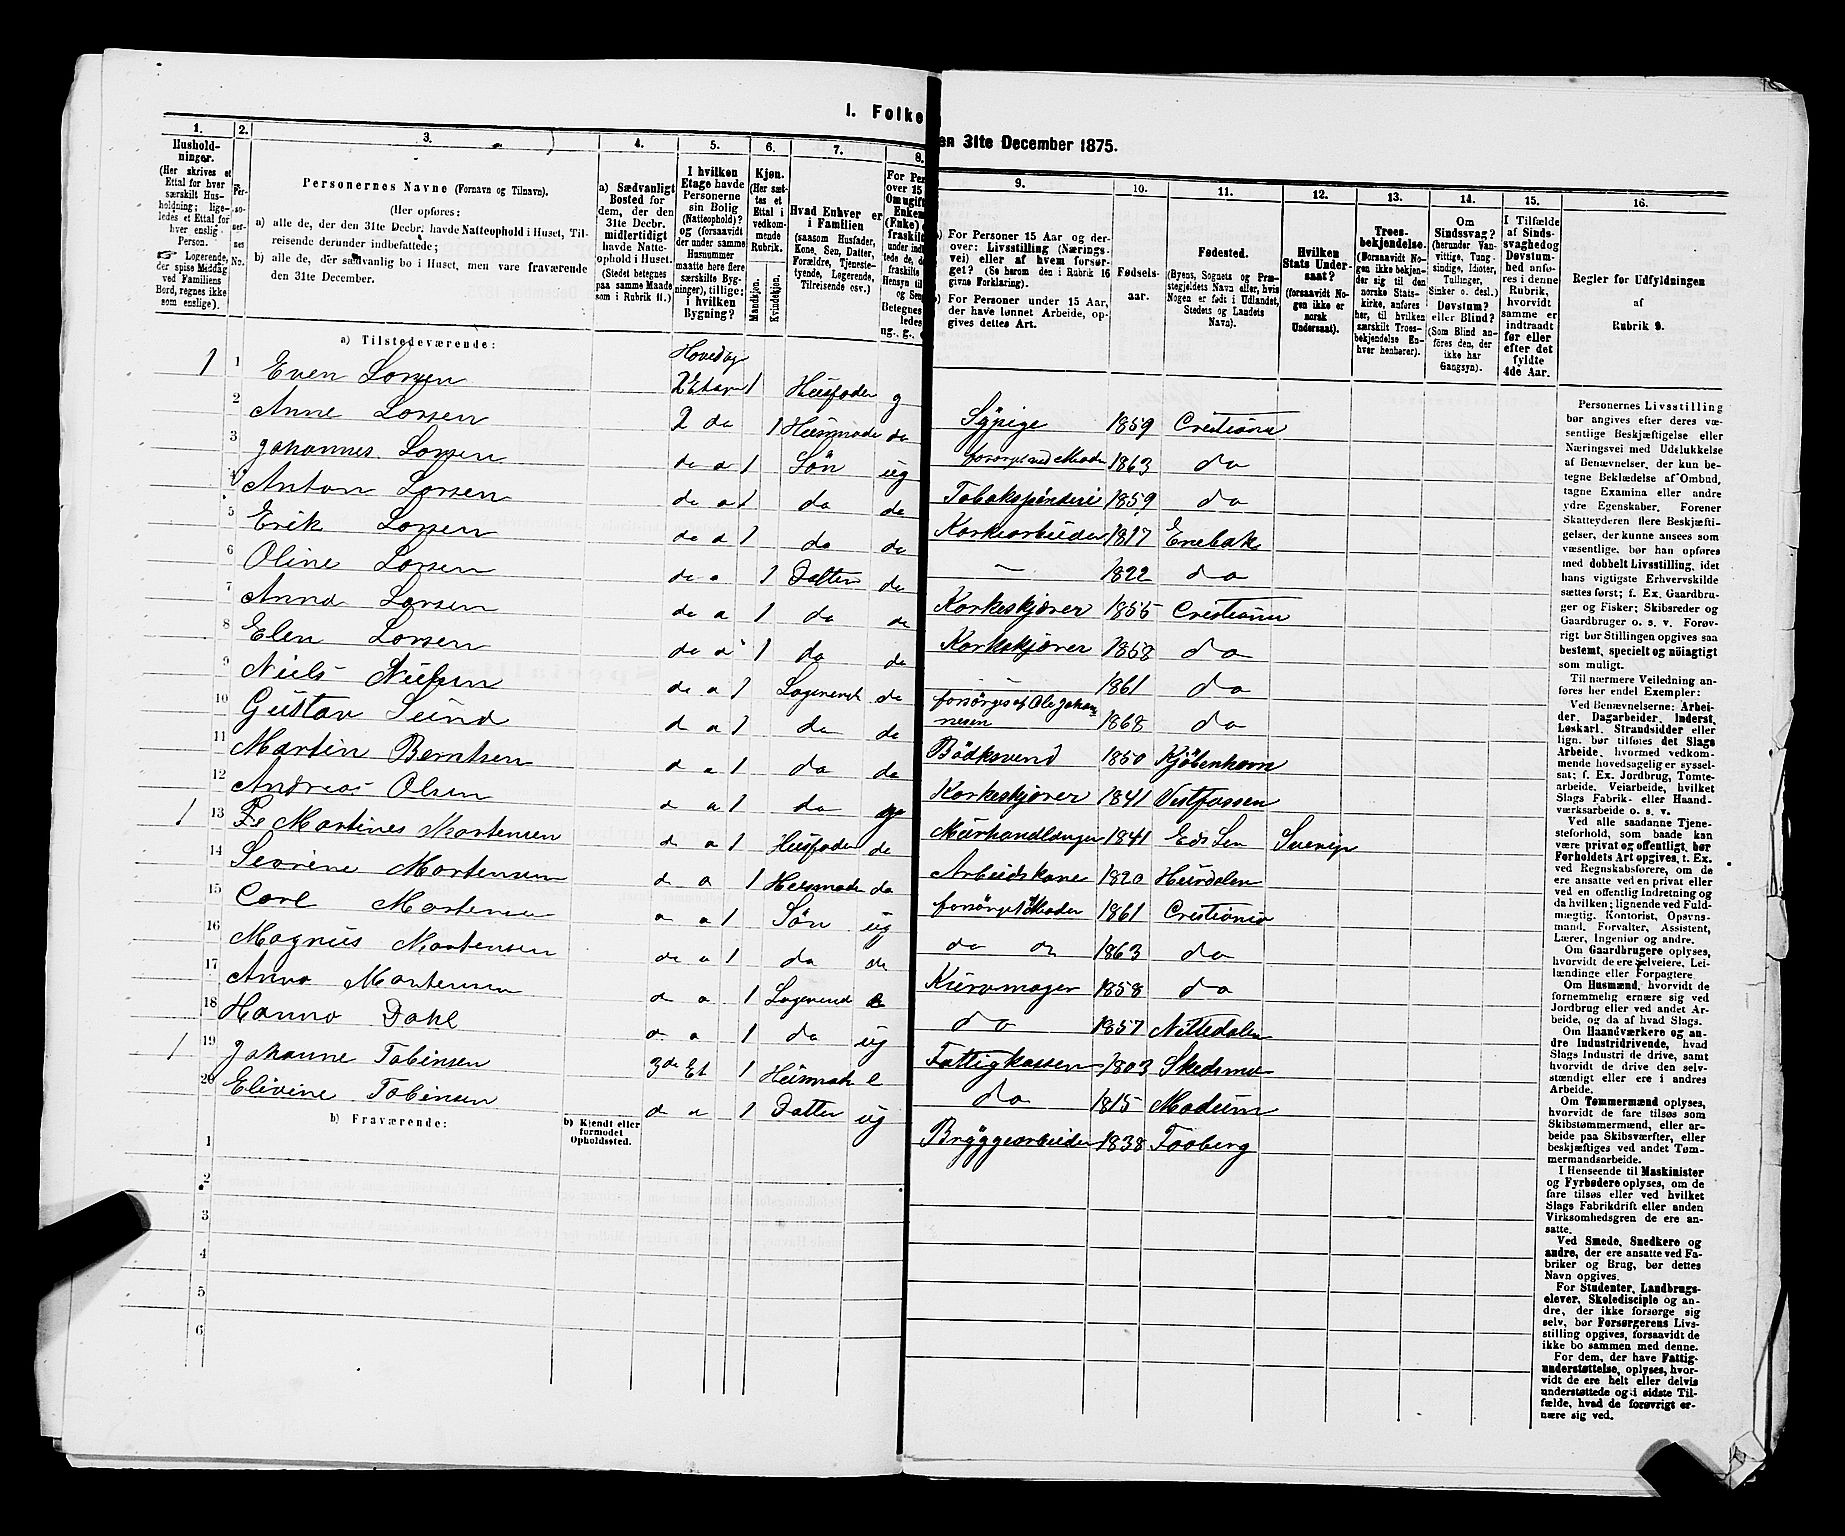 I. Folke
en 31te December 1875.
1.
Husholdninger.
(Her skrives et
Ettal for hver
særskilt Husholdning; ligeledes et Ettal for
hver enslig
Person.
☞ Logerende,
der spise Middag
ved Familiens
Bord, regnes ikke
som enslige).
2.
Personernes No.
3.
Personernes Navne (Fornavn og Tilnavn).
(Her opføres:
a) alle de, der den 31te Decbr. havde Natteophold i Huset, Tilreisende derunder indbefattede;
b) alle de, der sædvanlig bo i Huset, men vare fraværende
den 31te December.
4.
a) Sædvanligt
Bosted for
dem, der den
31te Decbr.
midlertidigt
havde Natteophold i Huset.
(Stedet betegnes
paa samme Maade
som i Rubrik 11.)
5.
I hvilken
Etage havde
Personerne
sin Bolig
(Natteophold)?
og (forsaavidt
der under samme
Husnummer
maatte høre flere
særskilte Bygninger), tillige:
i hvilken
Bygning?
6.
Kjøn.
(Her sættes et
Ettal i
vedkommende
Rubrik.
Mandkjøn.
Kvindekjøn.
7.
Hvad Enhver er
i Familien
(saasom Husfader,
Kone, Søn, Datter,
Forældre, Tjenestetyende, Logerende,
Tilreisende osv.)
8.
For Per
over 15
Om ugift
Enkem
(Enke)
fraskilt
9.
For Personer 15 Aar og derover: Livsstilling (Næringsvei) eller af hvem forsørget? (Se herom den i Rubrik 16
givne Forklaring).
For Personer under 15 Aar,
der have lønnet Arbeide, opgives dettes Art.
10.
Fødselsaar.
11.
Fødested.
(Byens, Sognets og Præstegjeldets Navn eller, hvis
Nogen er født i Udlandet,
Stedets og Landets
Navn).
12.
Hvilken
Stats Undersaat?
(forsaavidt Nogen ikke er
norsk
Undersaat).
13.
Troesbekjendelse.
(Forsaavidt Nogen ikke bekjender sig til den
norske Statskirke, anføres
her, til hvilken
særskilt Troesbekjendelse Enhver henhører).
14.
Om
Sindssvag?
(herunder Vanvittige, Tungsindige, Idioter,
Tullinger,
Sinker o. desl.)
Døvstum?
eller Blind?
(Som Blind anføres den, der
ikke har
Gangsyn).
15.
I Tilfælde
af Sindssvaghed og
Døvstumhed anføres i denne
Rubrik,
hvorvidt
samme er
indtraadt
før eller
efter det
fyldte
4de Aar.
16.
Regler for Udfyldningen
af
Rubrik 9.
a) Tilstedeværende:
1 1 Even Larsen Hovedbg 2 Etage 1 Husfader g
2 Anne Larsen 2 do 1 Husmoder do Sypige 1859 Cristiania
3 Johannes Larsen do o 1 Søn ug forsørges ved Moder 1863 do
4 Anton Larsen do o 1 do do Tobakspinderi 1859 do
5 Erik Larsen do o 1 do do Korkearbeider 1817 Enebak
6 Oline Larsen do o 1 Datter do — 1822 do
7 Anna Larsen do o 1 do do Korkeskjærer 1855 Cristiania
8 Elen Larsen do o 1 do do Korkeskjærer 1858 do
9 Niels Nielsen do o 1 Logerende do — 1861 do
10 Gustav Lund do o 1 do do forsørges af Ole Johannesen 1868 do
11 Martin Berntsen do o 1 do do Bødksvend 1850 Kjøbenhavn
12 Andreas Olsen do o 1 do g Korkeskjører 1841 Vestfossen
1 13 Martines Martensen do o 1 Husfader do Murhandlanger 1841 Eds Len Sverige
14 Severine Martensen do o 1 Husmoder do Arbeidskone 1820 Hurdalen
15 Carl Martensen o o 1 Søn ug forsørges Moder 1861 Cristiania
16 Magnus Martensen do o 1 do do do do 1863 do
17 Anna Martensen do o 1 Logerend Kurvmager 1858 do
18 Hanna Dahl o o 1 do ug do 1857 Nittedalen
1 19 Johanne Tobinsen 3de Et 1 Husmoder e Fattigkassen 1803 Skedsmo
20 Elivine Tobinsen do o 1 Datter ug do 1815 Modum
Bryggearbeider 1838 Faaberg
b) Fraværende:
b) Kjendt eller
formodet
Opholdssted.
1
2
3
4
5
6
Personernes Livsstilling
bør angives efter deres væsentlige Beskjæftigelse eller
Næringsvei med Udelukkelse
af Benævnelser, der kun betegne Beklædelse af Ombud,
tagne Examina eller andre
ydre Egenskaber. Forener
Skatteyderen flere Beskjæftigelser, der kunne ansees som
væsentlige, bør han opføres
med dobbelt Livsstilling, idet
hans vigtigste Erhvervskilde
sættes først; f. Ex. Gaardbruger og Fisker; Skibsreder og
Gaardbruger o. s. v. Forøvrigt bør Stillingen opgives saa
bestemt, specielt og nøiagtigt
som muligt.
Til nærmere Veiledning anføres her endel Exempler:
Ved Benævnelserne: Arbeider, Dagarbeider, Inderst,
Løskarl, Strandsidder eller
lign. bør tilføies det Slags
Arbeide, hvormed vedkommende hovedsagelig er sysselsat; f. Ex. Jordbrug, Tomtearbeide, Veiarbeide, hvilket
Slags Fabrik- eller Haandværksarbeide o. s. v.
Ved alle saadanne Tjenesteforhold, som baade kan
være privat og offentligt, bør
Forholdets Art opgives, t. Ex.
ved Regnskabsførere, om de
ere ansatte ved en privat eller
ved en offentlig Indretning og
da hvilken; lignende ved Fuldmægtig, Kontorist, Opsynsmand, Forvalter, Assistent,
Lærer, Ingeniør og andre.
Om Gaardbrugere oplyses,
hvorvidt de ere Selveiere, Leilændinge eller Forpagtere.
Om Husmænd, hvorvidt de
fornemmelig ernære sig ved
Jordbrug eller ved andet Arbeide, og da af hvad Slags.
Om Haandværkere og andre Industridrivende, hvad
Slags Industri de drive, samt
hvorvidt de drive den selvstændigt eller ere i andres
Arbeide.
Om Tømmermænd oplyses,
hvorvidt de fare tilsøs som
Skibstømmermænd, eller arbeide paa Skibsværfter, eller
beskjæftiges ved andet Tømmermandsarbeide.
I Henseende til Maskinister
og Fyrbødere oplyses, om de
fare tilsøs eller ved hvilket
Slags Fabrikdrift eller anden
Virksomhedsgren de ere ansatte.
Ved Smede, Snedkere og
andre, der ere ansatte ved Fabriker og Brug, bør dettes
Navn opgives.
For Studenter, Landbrugselever, Skoledisciple og andre, der ikke forsørge sig
selv, bør Forsørgerens Livsstilling opgives, forsaavidt de
ikke bo sammen med denne.
For dem, der have Fattigunderstøttelse, oplyses, hvorvidt de ere helt eller delvis
understøttede og i sidste Tilfælde, hvad de forøvrigt ernære sig ved.